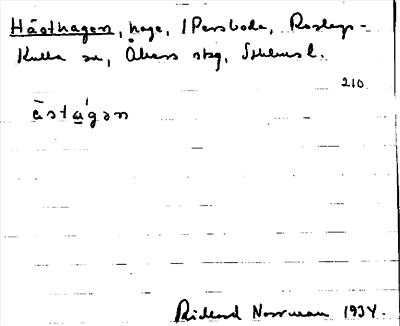 Hästhagen, hage, 1 Persboda, Roslags-
Kulla sn, Åkers skg, Sthlms l.
210
ā̀stágən
Rickard Norrman 1934.